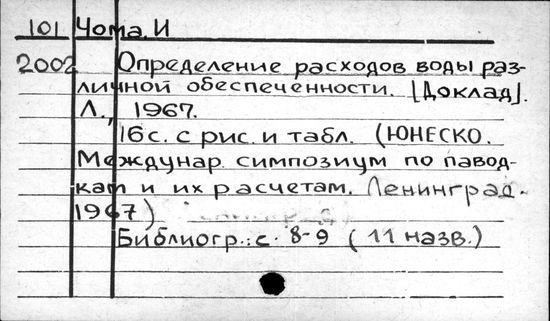 101 Чома, И
2002 Определение расходов воды раз-
личной обеспеченности. [Доклад].
Л., 1967.
16 с. с рис. и табл. (ЮНЕСКО.
Междунар. симпозиум по павод-
кам и их расчетам. Ленинград.
1967)
Библиогр.: с. 8-9 (11 назв.)